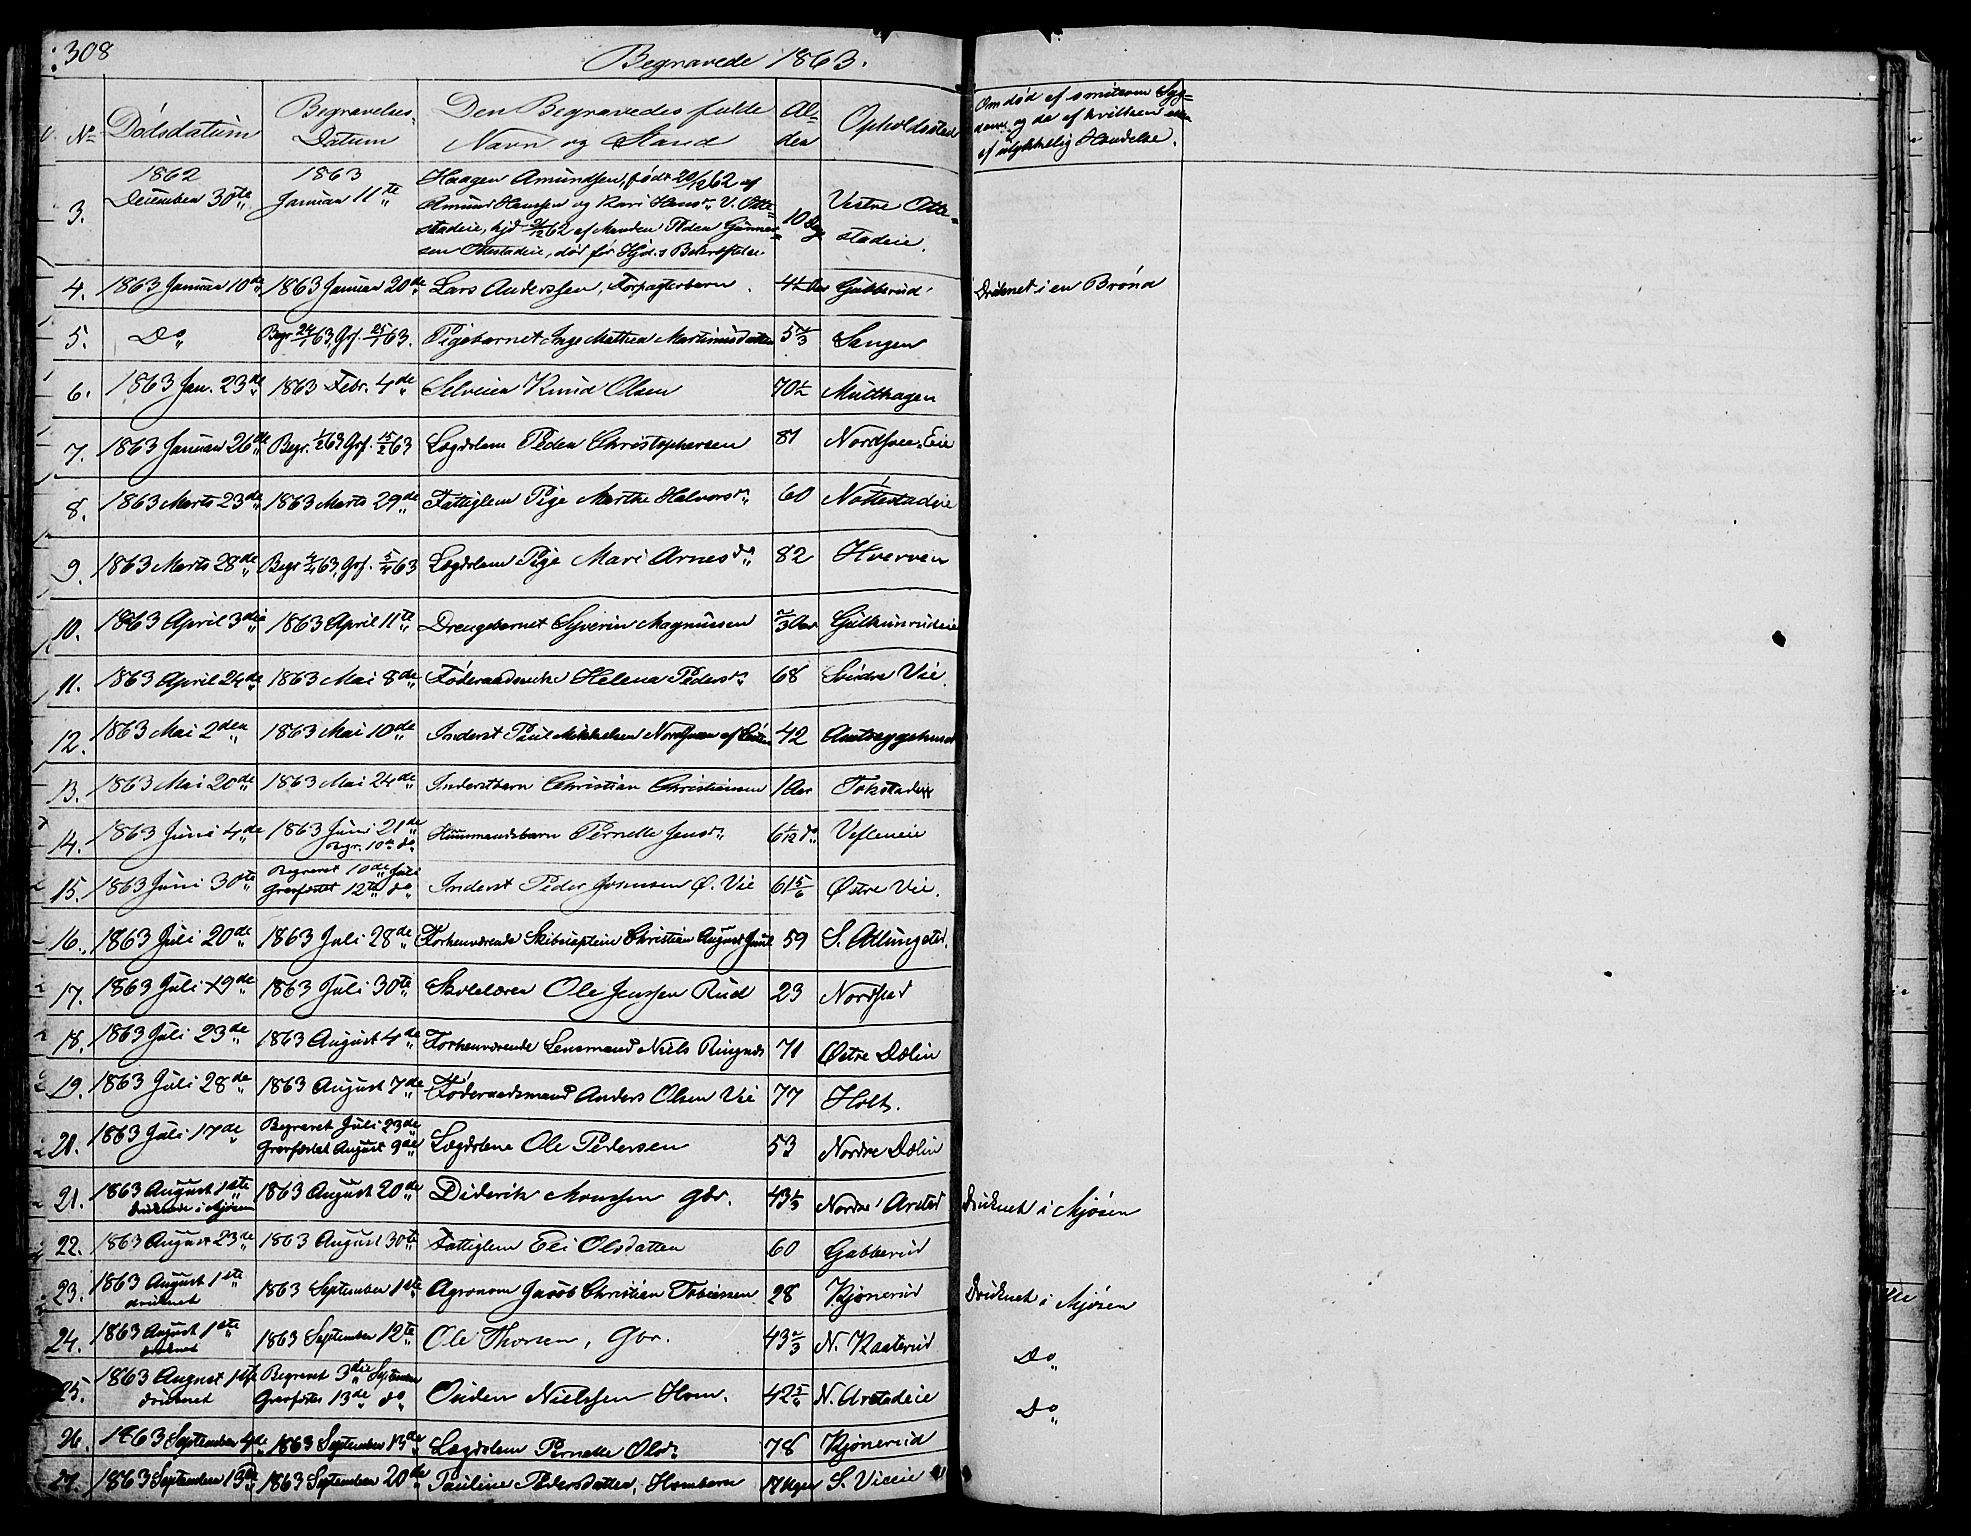 308
Begravede 1863.
No Dødsdatum Begravelses Datum Den Begravedes fulde Navn og Stand Al- der Opholdssted Om død af smitsom Syg- dom, og da af hvilken af ulykkelig Hændelse.
3. 1862 December 30te 1863 Januar 11te Haagen Amundsen, født 20/12 62 af
Amund Hansen og Kari Hansd. V. Otte-
stadeie, hjd 62 af Manden Peder Gunner-
sen Ottestadeie, død før Hjd.s Bekræftelse. 10 Dage Vestre Otte- stadeie.
4. 1863 Januar 10de 1863 Januar 20de Lars Anderssen, Forpagterbarn. Gubberud Druknet i en Brønd
5. Do Begr 24/1 63, Grf. 25/1 63. Pigebarnet Inge Mathea Martinusdatter 5 2/3 Sangen
6. 1863 Jan. 23de 1863 Febr. 4de Selveier Knud Olsen 70 1/2 Multhagen
7. 1863 Januar 26de Begr. 1/2 63 Grf. 15/2 63 Lægdslem Peder Christophersen 81 Nordsvee-Eie
8. 1863 Marts 23de 1863 Marts 29de Fattiglem Pige Marthe Halvorsd. 60 Nøttestadeie
9. 1863 Marts 28de Begr 4/4 63, Grf. 5/4 63 Lægdslem Pige Mari Arnesd. 82 Hverven
10. 1863 April 3die 1863 April 11te Drengebarnet Syverin Magnussen 2/3 Aar
11. 1863 April 24de 1863 Mai 8de Føderaadsenke Helena Pedersd. 68 Søndre Vie.
12. 1863 Mai 2den 1863 Mai 10de Inderst Paul Mikkelsen Nordsveen af Løiten 42
13. 1863 Mai 20de 1863 Mai 24de Inderstbarn Christian Christiansen 1 Aar Tokstad
14. 1863 Juni 4de 1863 Juni 21de
Begr. 10de do Huusmandsbarn Pernelle Jensd. 6/12 do Vefleneie
15. 1863 Juni 30te Begravet 10de Juli
Gravfæstet 12te do Inderst Peder Jonnsen Ø. Vie 61 5/6 Østre Vie.
16. 1863 Juli 20de 1863 Juli 28de Forhenværende Skibscaptein Christian August Juul 59 S. Atlungstad.
17. 1863 Juli 19de 1863 Juli 30te Skolelærer Ole Jenssen Rud 23 Nordstad
18. 1863 Juli 23de 1863 August 4de Forhenværende Lensmand Niels Ringnæs 71 Østre Dælin
19. 1863 Juli 28de 1863 August 7de Føderaadsmand Anders Olsen Vie 77 Holt.
20. 1863 Juli 17de Begravet Juli 23de
Gravfæstet August 9de Lægdslem Ole Pedersen 53 Nordre Dælin
21. 1863 August 1ste
druknede i Mjøsen 1863 August 20de Diderik Monssen gbr. 43 1/3 Nordre Arstad Druknet i Mjøsen
22. 1863 August 23de 1863 August 30te Fattiglem Eli Olsdatter 60 Gubberud
23. 1863 August 1ste
druknet 1863 September 1ste Agronom Jacob Christian Tobiessen 28 Kjønerud Druknet i Mjøsen
24. 1863 August 1ste
druknet 1863 September 12te Ole Thorsen, Gbr. 43 2/3 N. Kaaterud Do
25. 1863 August 1ste
druknet Begravet 3die September
Gravfæstet 13de do Ouden Nielssen Hsm. 42 N. Arstadeie Do
26. 1863 September 4de 1863 September 13de Lægdslem Pernelle Olsd. 78 Kjønerud
27. 1863 September 13de 1863 September 20de Pauline Pedersdatter, Hsmbarn 17 Uger S. Vieeie